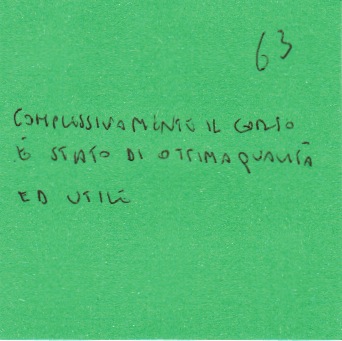 63
COMPLESSIVAMENTE IL CORSO
È STATO DI OTTIMA QUALITÀ
ED UTILE